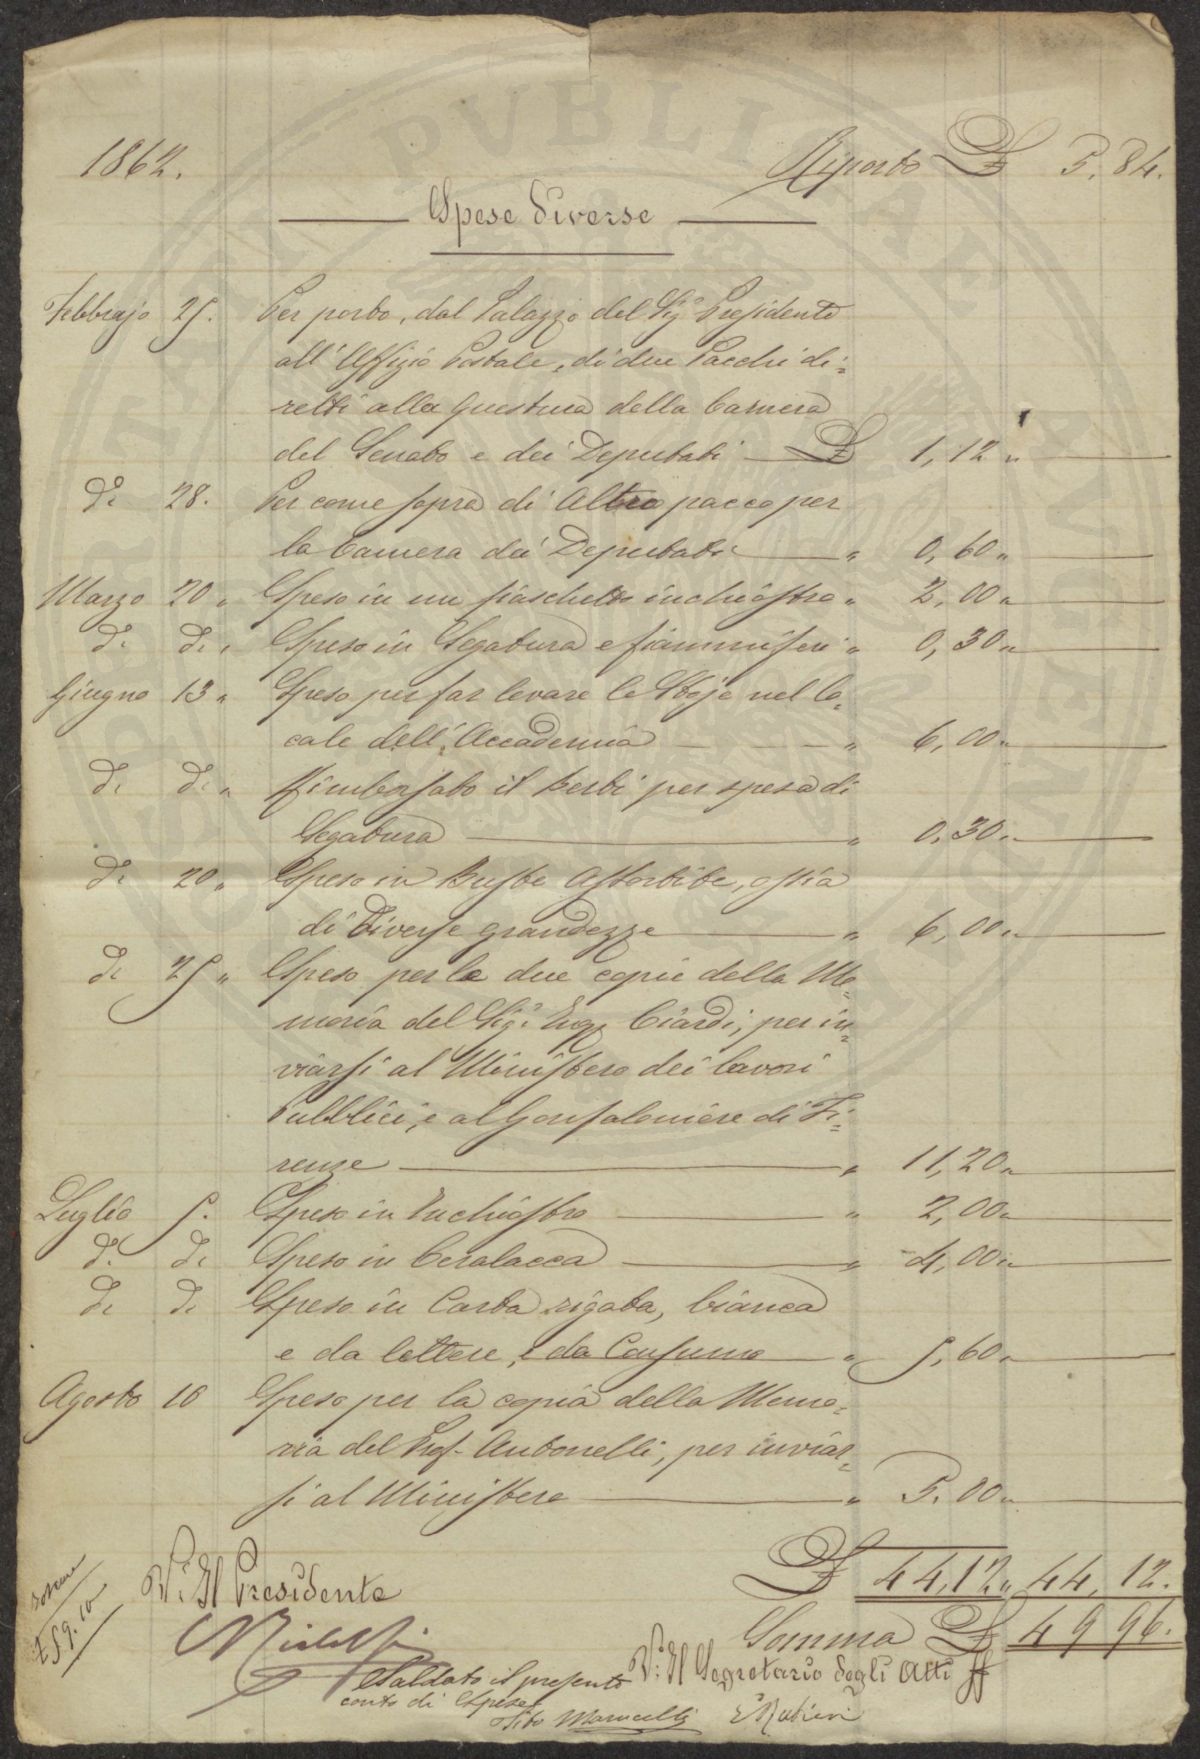 1862. Riporto £ 5. 84.
Spese Diverse
Febbrajo 25. Per porto, dal Palazzo del Sig.r Presidente
all'Uffizio Postale, di due Pacchi di=
retti alla Questura della Camera
del Senato e dei Deputati £ 1,12 "
D.i 28. Per come sopra di Altro pacco per
la Camera dei Deputati " 0,60 "
Marzo 20 " Speso in un fiaschetto inchiostro " 2,00 "
D.i D.i " Speso in Segatura e fiammiferi " 0,30 "
Giugno 13 " Speso per far levare le Stoje nel lo=
cale dell'Accademia " 6,00 "
D.i D.i " Rimborsato il Berti per spesa di
Segatura " 0,30 "
D.i 20 " Speso in Buste Assortite, ossia
di Diverse grandezze " 6,00 "
D.i 25 " Speso per le due copie della Me=
moria del Sig.r Ing. Ciardi, per in=
viarsi al Ministero dei lavori
Pubblici, e al Gonfaloniere di Fi=
renze " 11,20 "
Luglio 5. Speso in Inchiostro " 2,00 "
D.i D.i Speso in Ceralacca " 4,00 "
D.i D.i Speso in Carta rigata, bianca
e da lettere, e da Consumo " 5,60 "
Agosto 16 Speso per la copia della Memo=
ria del Prof. Antonelli, per inviar=
si al Ministero " 5.00 "
£ 44,12 " 44, 12.
Somma £ 49 96.
V.i Il Presidente
V.i Il Segretario degli Atti ff
Saldato il presente
conto di Spese
Tito Marucelli